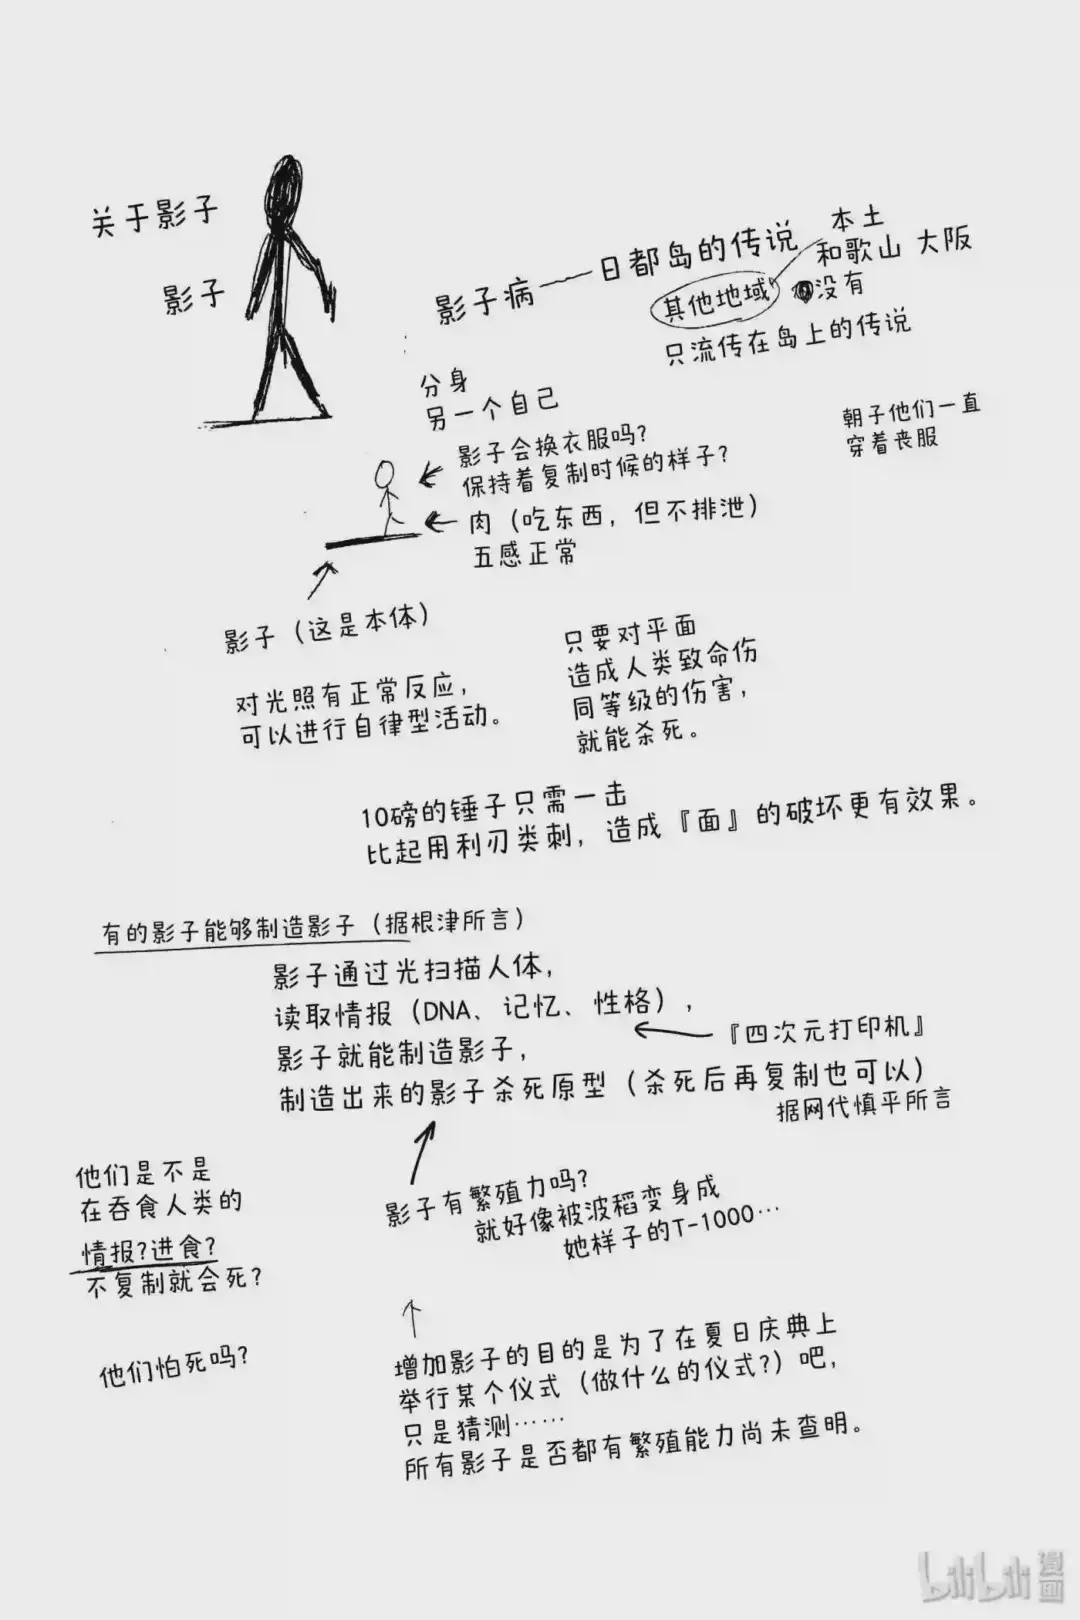 关于影子
影子
影子病
日都岛的传说
本土
和歌山 大阪
没有
其他地域
只流传在岛上的传说
分身
另一个自己
影子会换衣服吗？
保持着复制时候的样子？
朝子他们一直
穿着丧服
肉（吃东西，但不排泄）
五感正常
影子（这是本体）
对光照有正常反应，
可以进行自律型活动。
只要对平面
造成人类致命伤
同等级的伤害，
就能杀死。
10磅的锤子只需一击
比起用利刃类刺，造成『面』的破坏更有效果。
有的影子能够制造影子（据根津所言）
影子通过光扫描人体，
读取情报（DNA、记忆、性格），
影子就能制造影子，
『四次元打印机』
制造出来的影子杀死原型（杀死后再复制也可以）
据网代慎平所言
他们是不是
在吞食人类的
情报？进食？
不复制就会死？
影子有繁殖力吗？
就好像被波稻变身成
她样子的T-1000…
他们怕死吗？
增加影子的目的是为了在夏日庆典上
举行某个仪式（做什么的仪式？）吧，
只是猜测……
所有影子是否都有繁殖能力尚未查明。
bilibili 漫画